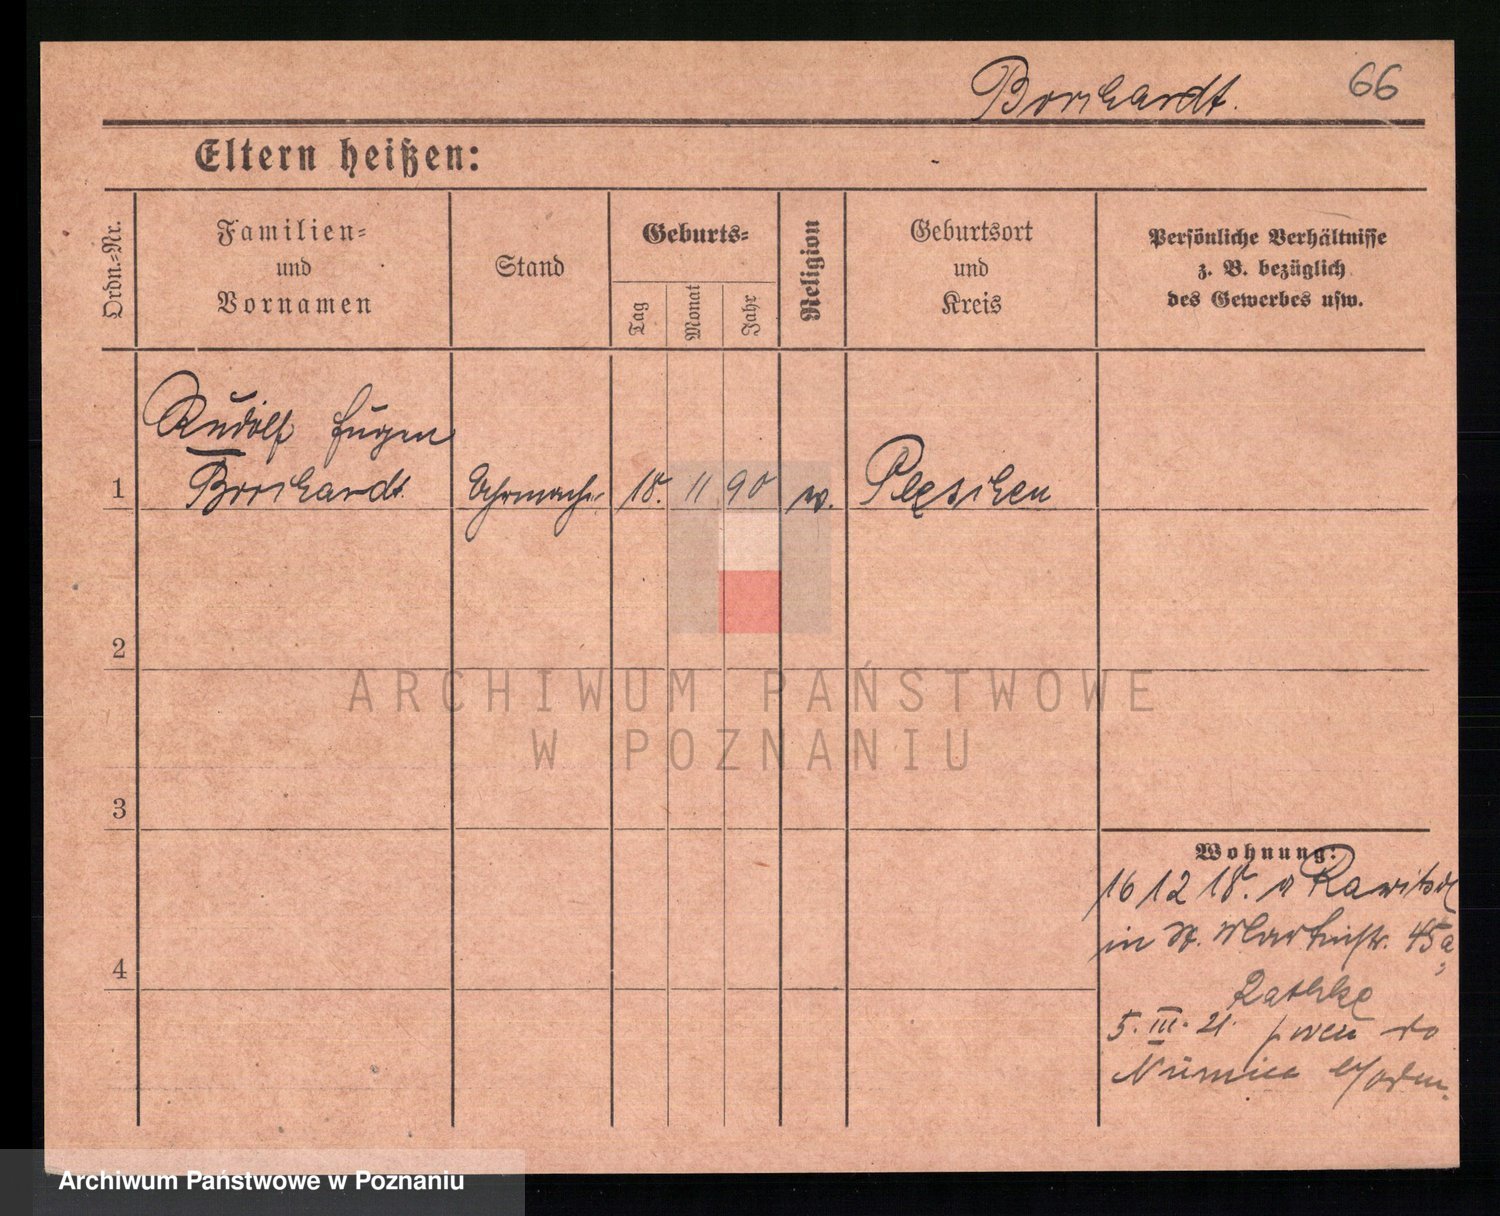 Borchardt.
66
Eltern heißen:
Ordn.-Nr.
Familien-
und
Vornamen
Stand
Geburts-
Tag
Monat
Jahr
Religion
Geburtsort
und
Kreis
Persönliche Verhältnisse
z. B. bezüglich
des Gewerbes usw.
Rudolf Eugen
1 Borchardt Uhrmacher 18. 11 90 ev. Pleschen
2
3
4
Wohnung:
16 12 18. v Rawitsch
in St. Martinstr. 45a,
Rathke
5. III. 21.
ARCHIWUM PAŃSTWOWE
W POZNANIU
Archiwum Państwowe w Poznaniu